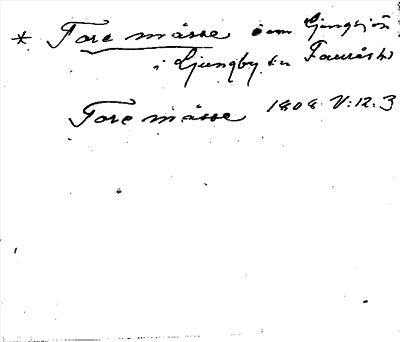 * Tore måsse i om Ljungsjön
i Ljungby sn Faurås hd
Tore måsse 1808 V:12.3